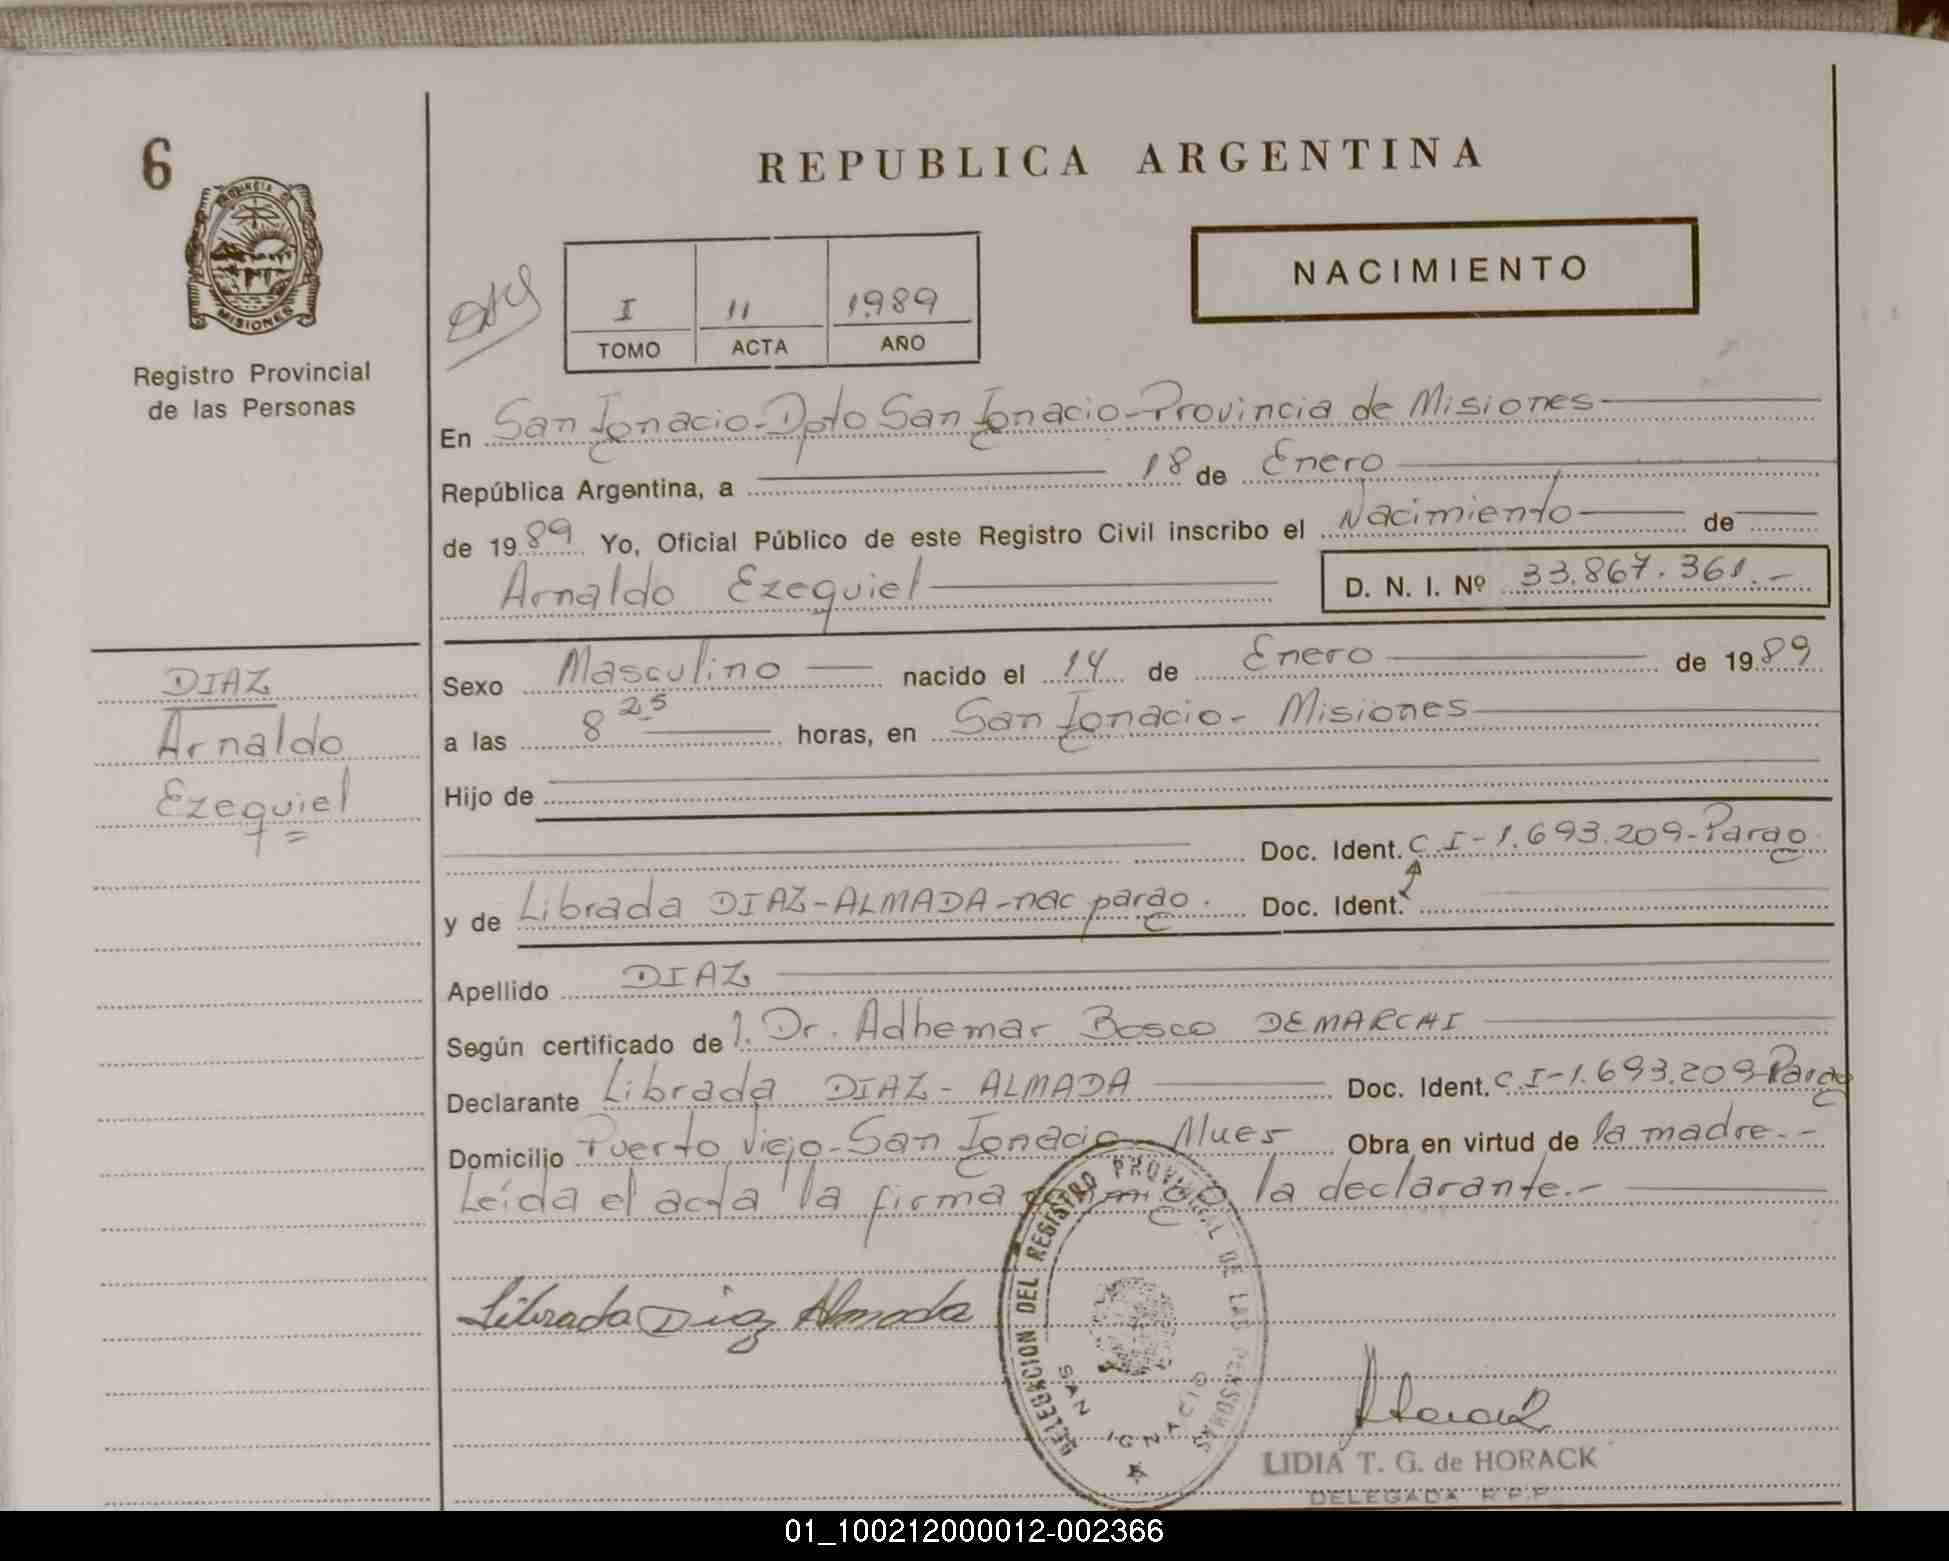 6
PROVINCIA DE
MISIONES
Registro Provincial
de las Personas
DIAZ
Arnaldo
Ezequiel
REPUBLICA ARGENTINA
NACIMIENTO
I 11 1989
TOMO ACTA AÑO
En San Ignacio-Dpto San Ignacio-Provincia de Misiones
República Argentina, a 18 de Enero
de 1989 Yo, Oficial Público de este Registro Civil inscribo el Nacimiento de
Arnaldo Ezequiel D. N. I. Nº 33.867.361.-
Sexo Masculino nacido el 14 de Enero de 1989
a las 8 25 horas, en San Ignacio- Misiones
Hijo de
Doc. Ident. C.I-1.693.209-Parag
y de Librada DIAZ-ALMADA-nac parag. Doc. Ident.
Apellido DIAZ
Según certificado de l. Dr. Adhemar Bosco DEMARCHI
Declarante Librada DIAZ- ALMADA Doc. Ident. C.I-1.693.209-Parag
Domicilio Puerto Viejo-San Ignacio Mnes Obra en virtud de la madre.-
Leída el acta la firma conmigo la declarante.-
Librada Diaz Almada
DELEGACION DEL REGISTRO PROVINCIAL DE LAS PERSONAS
SAN IGNACIO
LIDIA T. G. de HORACK
DELEGADA R.P.P.
01_100212000012-002366